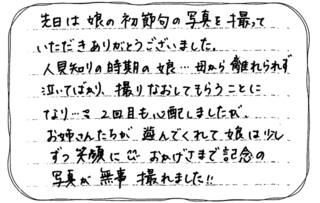 先日は娘の初節句の写真を撮って
いただきありがとうございました。
人見知りの時期の娘…母から離れられず
泣いてばかり、撮りなおしてもらうことに
なり…2回目も心配しましたが、
お姉さんたちが遊んでくれて娘は少し
ずつ笑顔に おかげさまで記念の
写真が無事撮れました!!